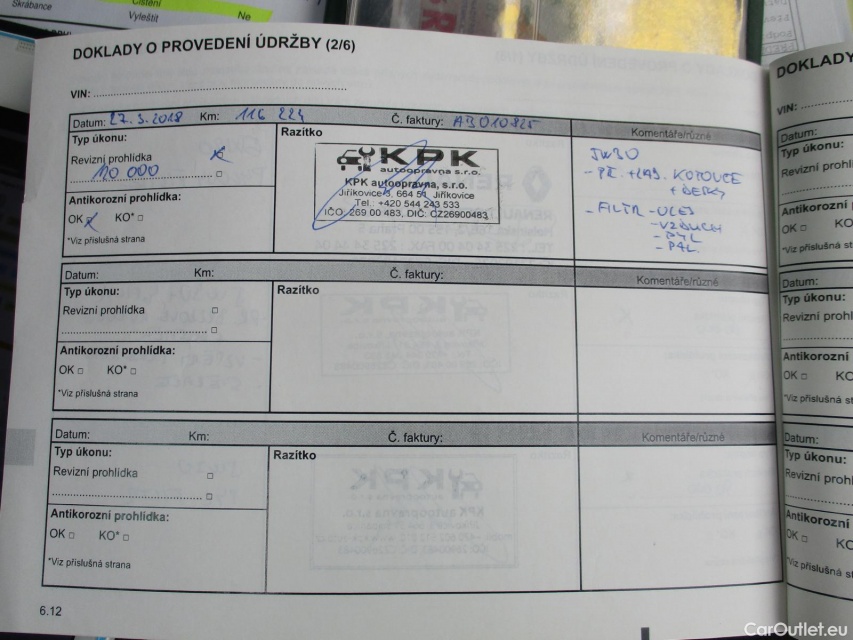 Skrábance
Čištění
Vyleštit
Ne
DOKLADY O PROVEDENÍ ÚDRŽBY (2/6)
VIN:
Datum: 27.3.2018 Km: 116 224 Č. faktury: AB010825 Komentáře/různé
Typ úkonu:
Revizní prohlídka
Antikorozní prohlídka:
OK KO*
*Viz příslušná strana
Razítko
KPK
autoopravna s.r.o.
KPK autoopravna, s.r.o.
Jiříkovice 3, 664 51 Jiříkovice
Tel.: +420 544 243 533
IČO: 269 00 483, DIČ: CZ26900483
5W30
- PŘ. + ZAD. KOTOUČE
+ DESKY
- FILTR - OLEJ
- VZDUCH
- PYL
- PAL.
Datum: Km: Č. faktury: Komentáře/různé
Typ úkonu:
Revizní prohlídka
Antikorozní prohlídka:
OK KO*
*Viz příslušná strana
Razítko
Datum: Km: Č. faktury: Komentáře/různé
Typ úkonu:
Revizní prohlídka
Antikorozní prohlídka:
OK KO*
*Viz příslušná strana
Razítko
6.12
DOKLADY
VIN:
Datum:
Typ úkonu:
Revizní prohl
Antikorozní
OK KO
*Viz příslušná st
Datum:
Typ úkonu:
Revizní prohlí
Antikorozní
OK KO
*Viz příslušná s
Datum:
Typ úkonu:
Revizní prohl
Antikorozní
OK KO
*Viz příslušná
CarOutlet.eu